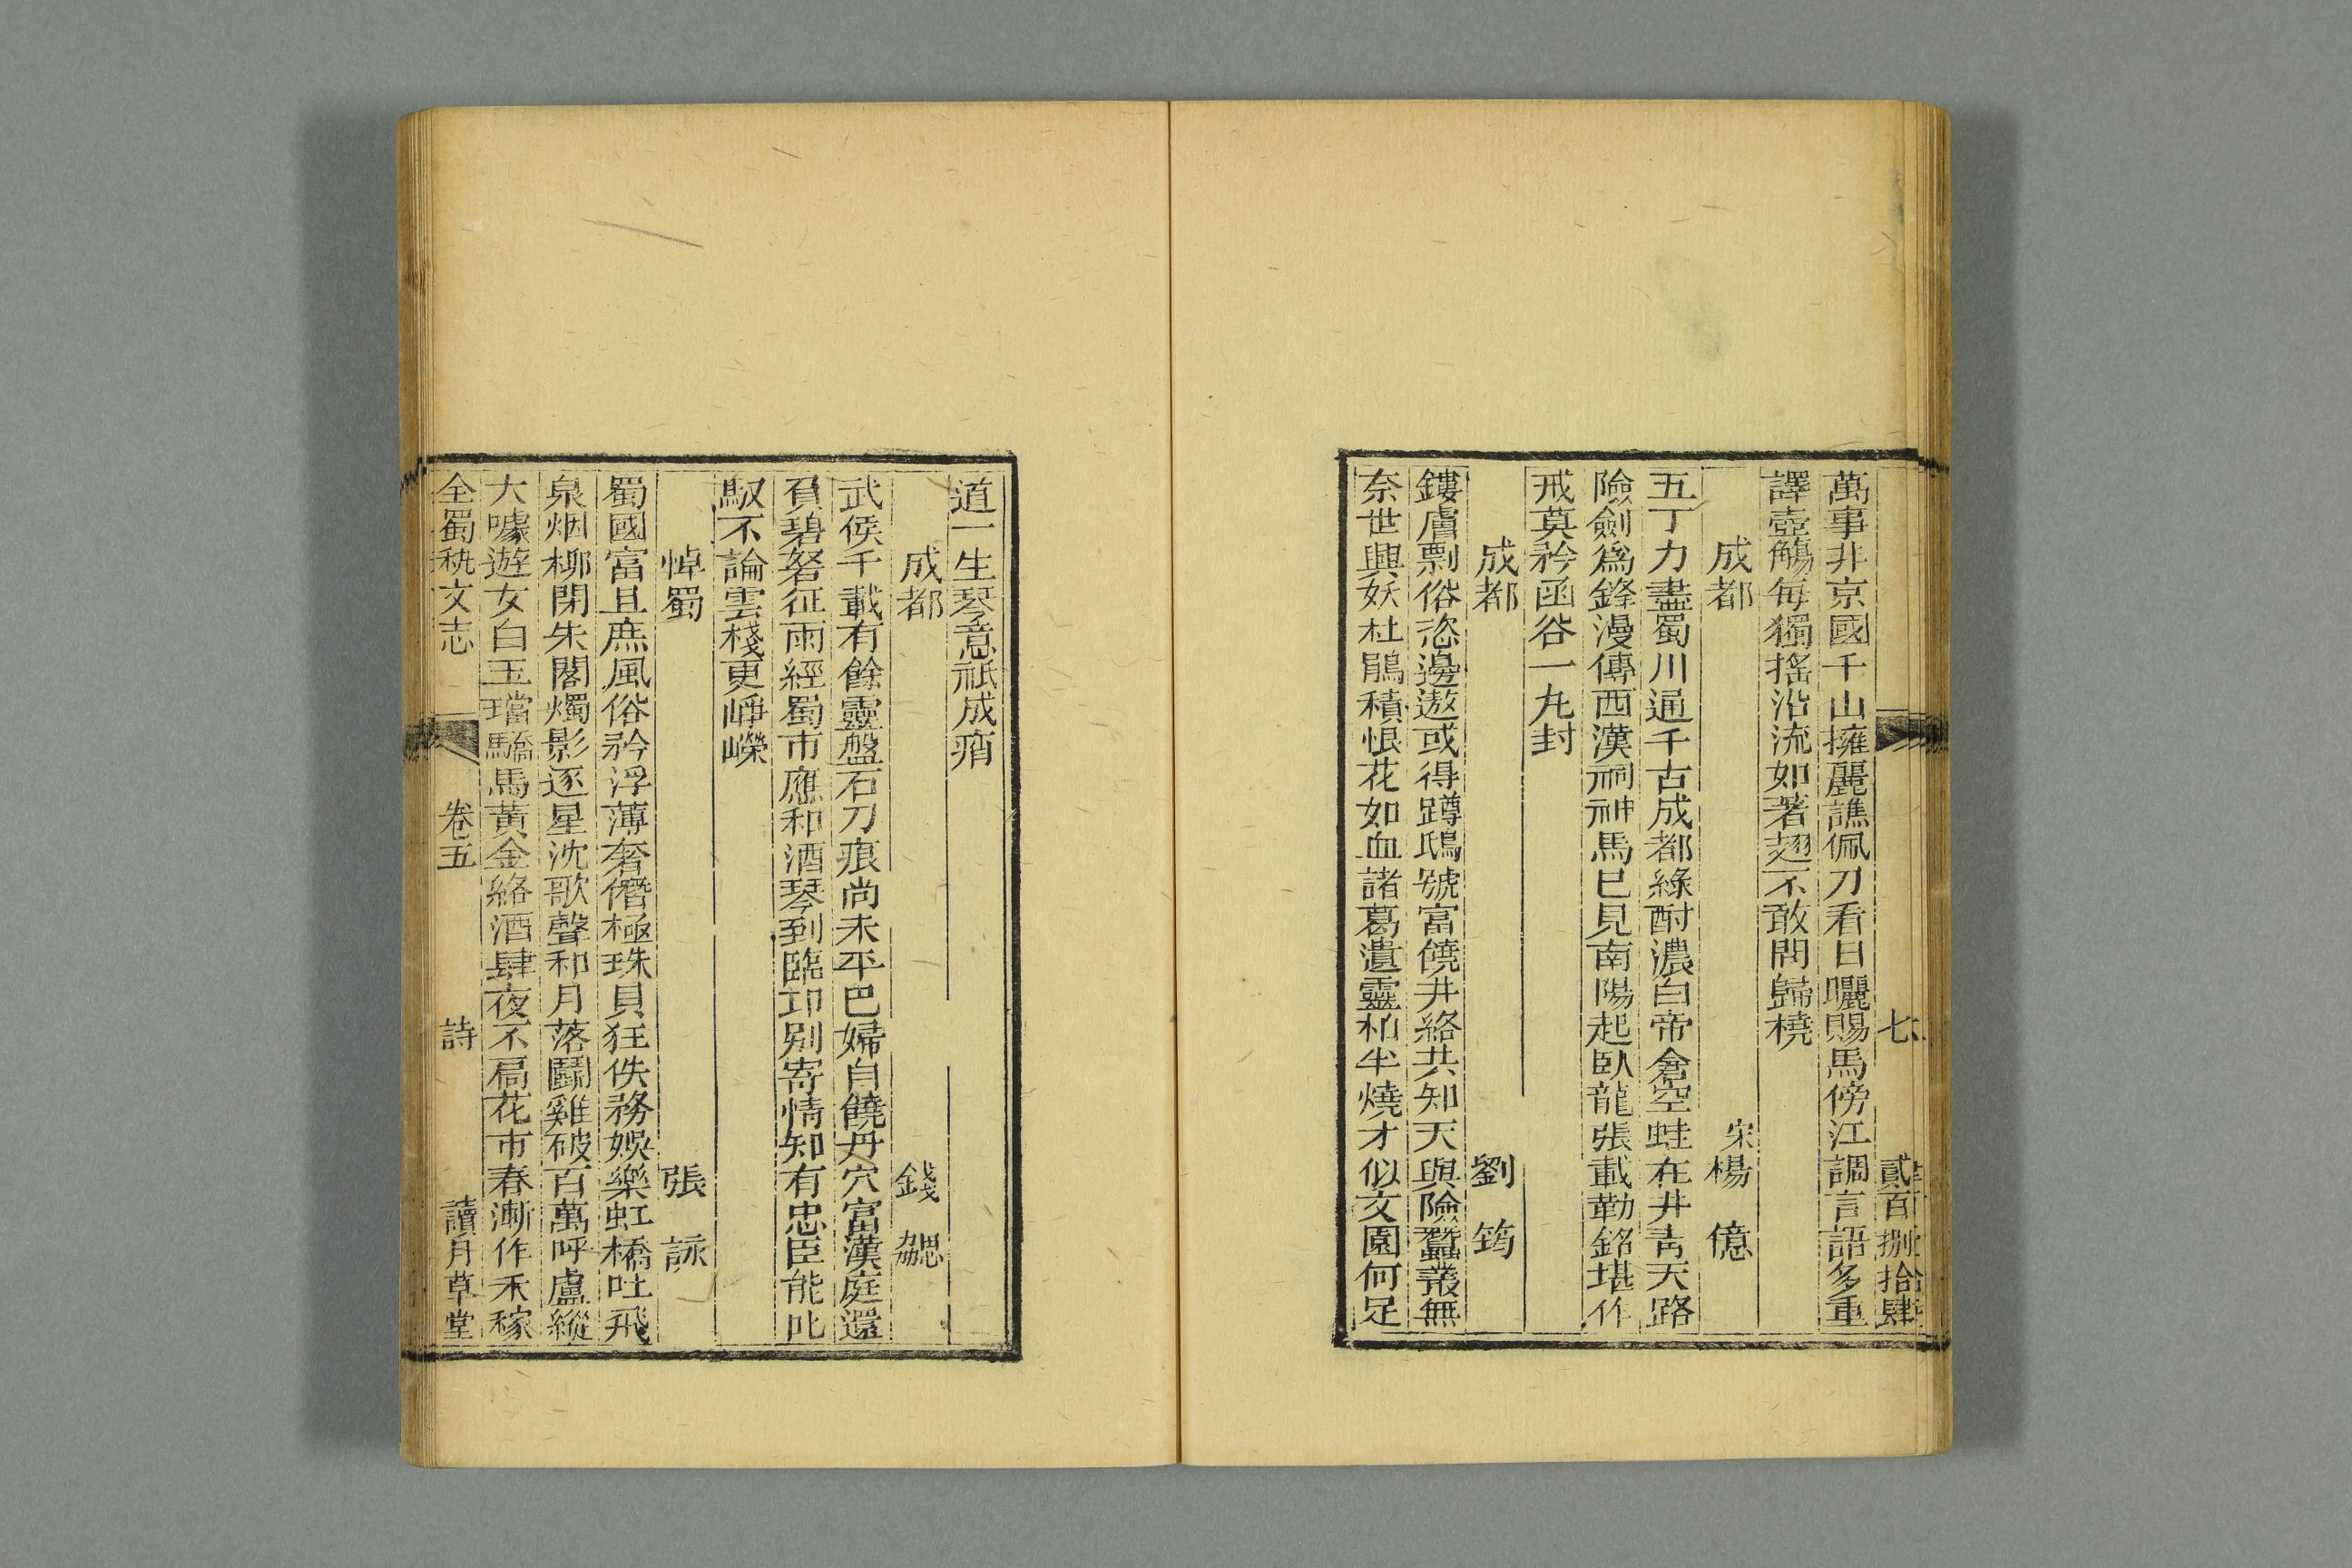 七 貳百捌拾肆
萬事非京國千山擁麗譙佩刀看日曬賜馬傍江調言語多重
譯壺觴每獨搖沿流如著翅不敢問歸橈
成都 宋楊 億
五丁力盡蜀川通千古成都綠酎濃白帝倉空蛙在井靑天路
險劍爲鋒漫傳西漢祠神馬已見南陽起臥龍張載勒銘堪作
戒莫矜函谷一丸封
成都 劉 筠
鏤膚剽俗恣邊遨或得蹲鴟號富饒井絡共知天與險蠶叢無
奈世興妖杜鵑積恨花如血諸葛遺靈柏半燒才似文園何足
道一生琴意祇成痟
成都 錢 勰
武侯千載有餘靈盤石刀痕尚未平巴婦自饒丹穴富漢庭還
負碧砮征雨經蜀市應和酒琴到臨邛別寄情知有忠臣能叱
馭不論雲棧更崢嶸
悼蜀 張 詠
蜀國富且庶風俗矜浮薄奢僭極珠貝狂佚務娛樂虹橋吐飛
泉烟柳閉朱閣燭影逐星沈歌聲和月落鬭雞破百萬呼盧縱
大噱遊女白玉璫驕馬黃金絡酒肆夜不扃花市春漸作禾稼
全蜀秇文志 卷五 詩 讀月草堂